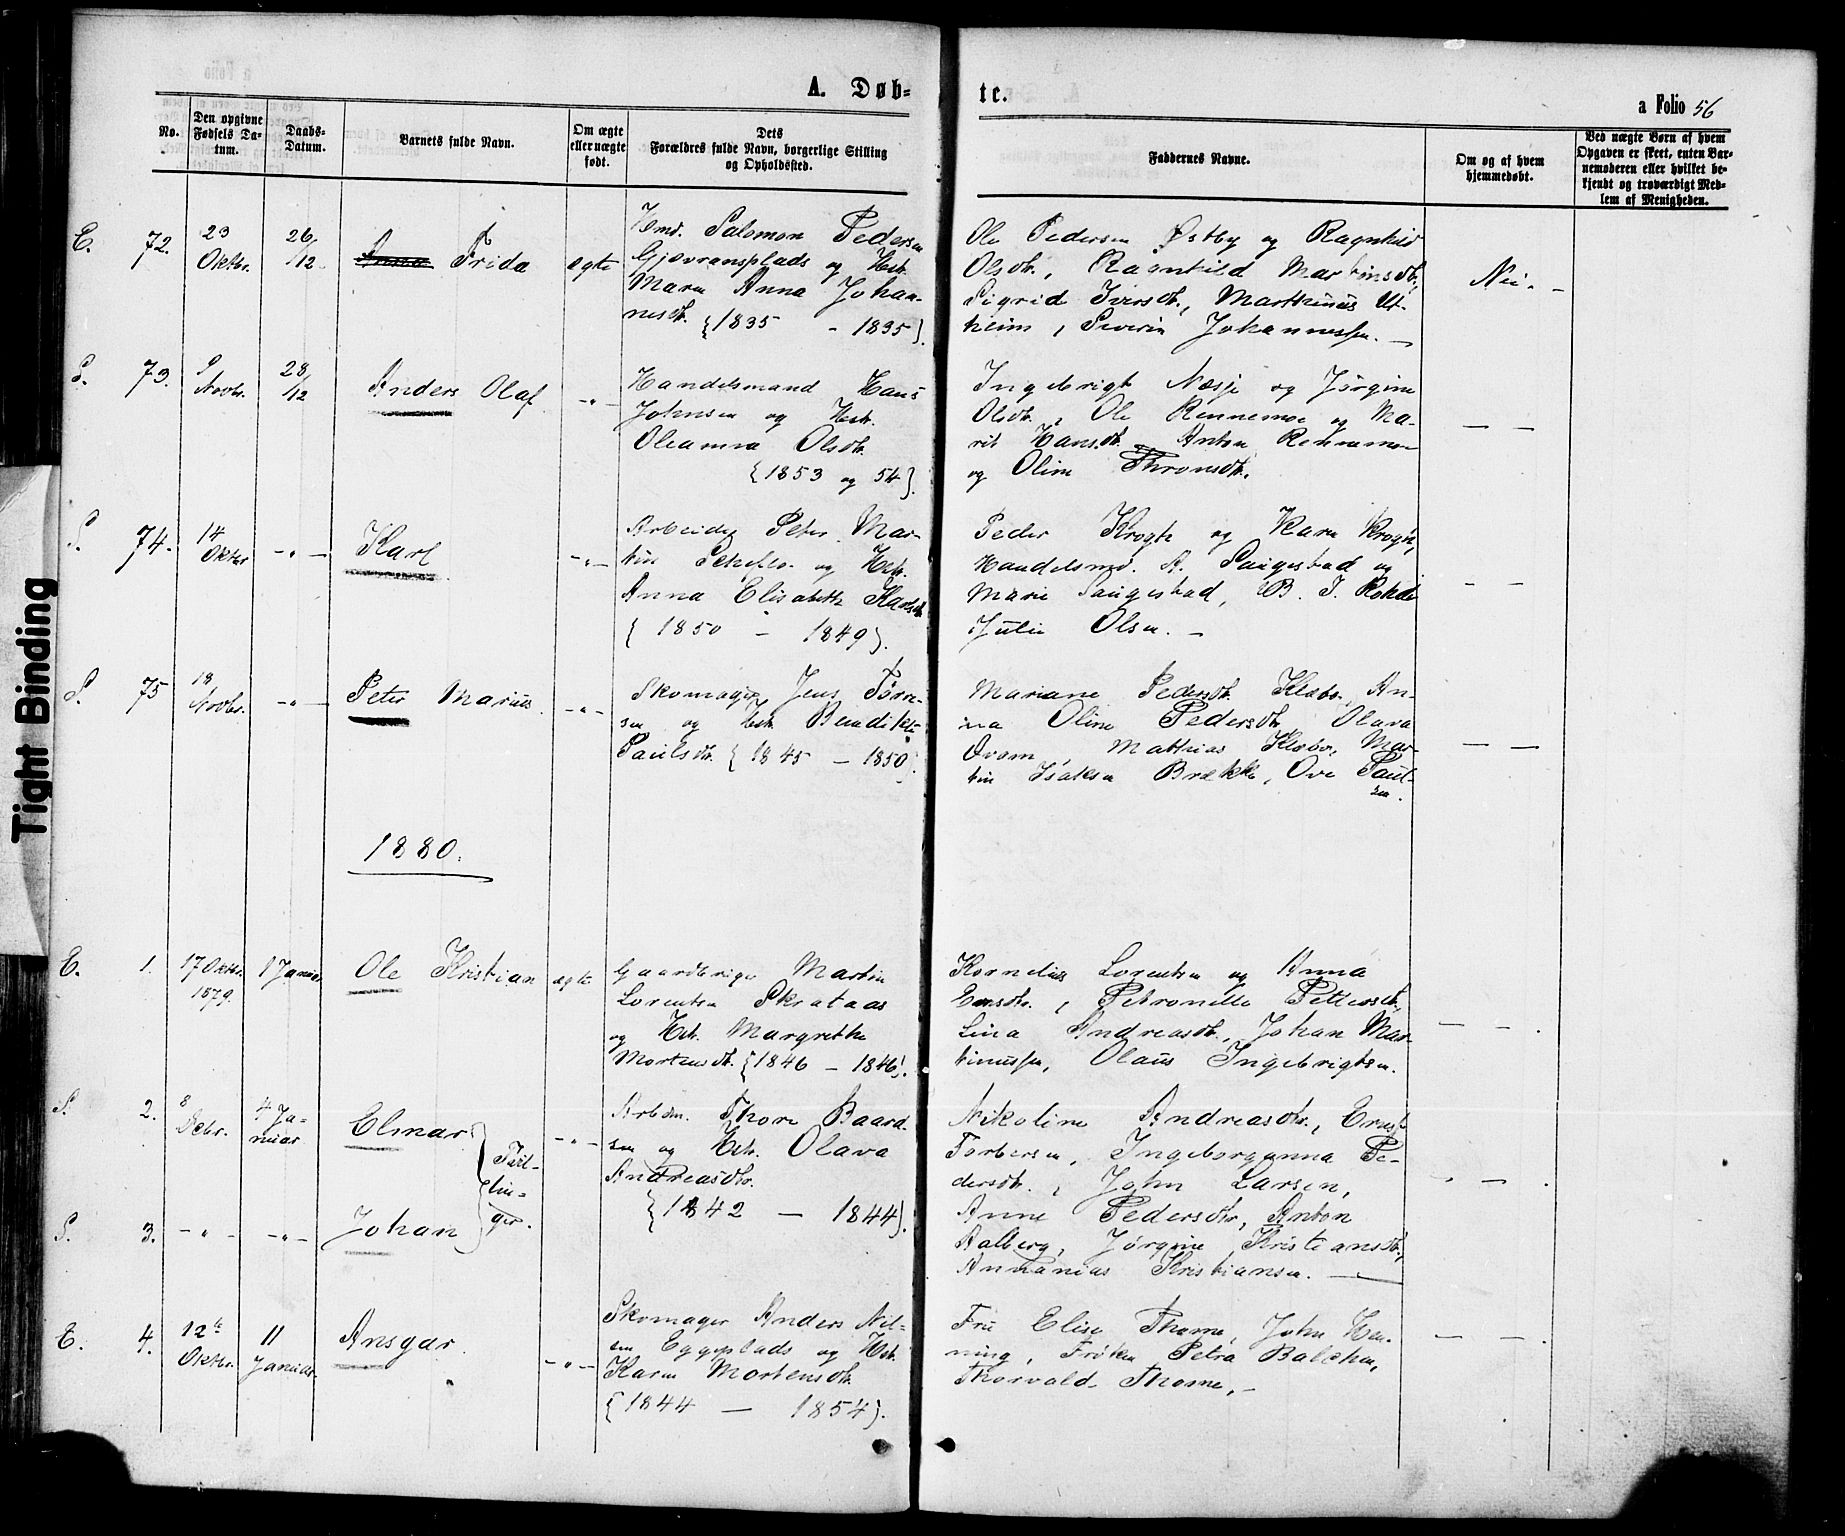 A. Døb-
te.
a Folio 56
No.
Den opgivne Fødsels Da-tum.
Daabs-Datum.
Barnets fulde Navn.
Om ægte eller uægte født.
Dets Forældres fulde Navn, borgerlige Stilling og Opholdssted.
Faddernes Navne.
Om og af hvem hjemmedøbt.
Ved uægte Børn af hvem Opgaven er skeet, enten Bar-nemoderen eller hvilket be-kjendt og troværdigt Med-lem af Menigheden.
E. 72. 23 Oktbr. 26/12 Anna Frida ægte
Hmd. Salomon Pedersen
Gjævransplads og Hstr.
Maren Anna Johan-
nesdtr. {1835 - 1835}.
Ole Pedersen Østby og Ragnhild
Olsdtr., Ragnhild Martinsdtr.,
Sigrid Iversdtr., Marthinus Ut-
heim, Severin Johannessen. —
Nei. -
S. 73. 9 Novbr. 28/12 Anders Olaf. -"-
Handelsmand Hans
Johnsen og Hstr.
Oleanna Olsdtr.
{1853 og 54}.
Ingebrigt Næsje og Jørgine
Olsdtr., Ole Rennemoe og Ma-
rit Hansdtr., Anton Rennemoe
og Oline Thronsdtr.
— —
S. 74. 14 Oktbr. -"- Karl -"-
Arbeider Peter Mar-
tin og Hstr.
Anna Elisabeth Karlsdtr.
{1850 - 1849}.
Peder Krogh og Karen Krogh,
Handelsmd. A. Saugestad og
Marie Saugestad, B. J. Rohde
Julie Olsen. —
— —
S. 75 18 Novbr. -"- Peter Marius. -"-
Skomager Jens Tørri-
sen og Hstr. Bendikte
Paulsdtr. {1845 - 1850}.
Mariane Pedersdtr. Klæbo, An-
na Oline Pedersdtr., Olava
Ovam, Mathias Klæbo, Mar-
tin Isaksen Brække, Ove Paul-
sen.
— —
1880.
E. 1. 17 Oktbr. 1879. 1 Januar Ole Kristian ægte
Gaardbruger Martin
Lorentsen Skrataas
og Hstr. Margrethe
Mortensdtr. {1846 - 1846}.
Kornelius Lorentsen og Anna
Ensdtr., Petronille Pettersdtr.,
Lina Andreasdtr., Johan Mar-
tinussen, Olaus Ingebrigtsen.
— — .
S. 2. 8 Debr. 4 Ja-nuar Elmar -"-
Tvil-
lin-
ger.
S. 3. -"- -"- Johan
Arbdm. Thore Baard-
sen og Hstr. Olava
Andreasdtr.
{1842 - 1844}.
Nikoline Andreasdtr., Ernst
Torbersen, Ingeborganna Pe-
dersdtr., John Larsen,
Anne Pedersdtr., Anton
Aalberg, Jørgine Kristiansdtr.,
Annanias Kristiansen. —
- — .
E. 4. 12te Oktbr. 11 Januar. Ansgar. -"-
Skomager Anders Nil-
sen Eggeplads og Hstr.
Karen Mortensdtr.
{1844 — 1854}.
Fru Elise Thome, John Hen-
ning, Frøken Petra Balchen,
Thorvald Thome. -
— — .
Tight Binding